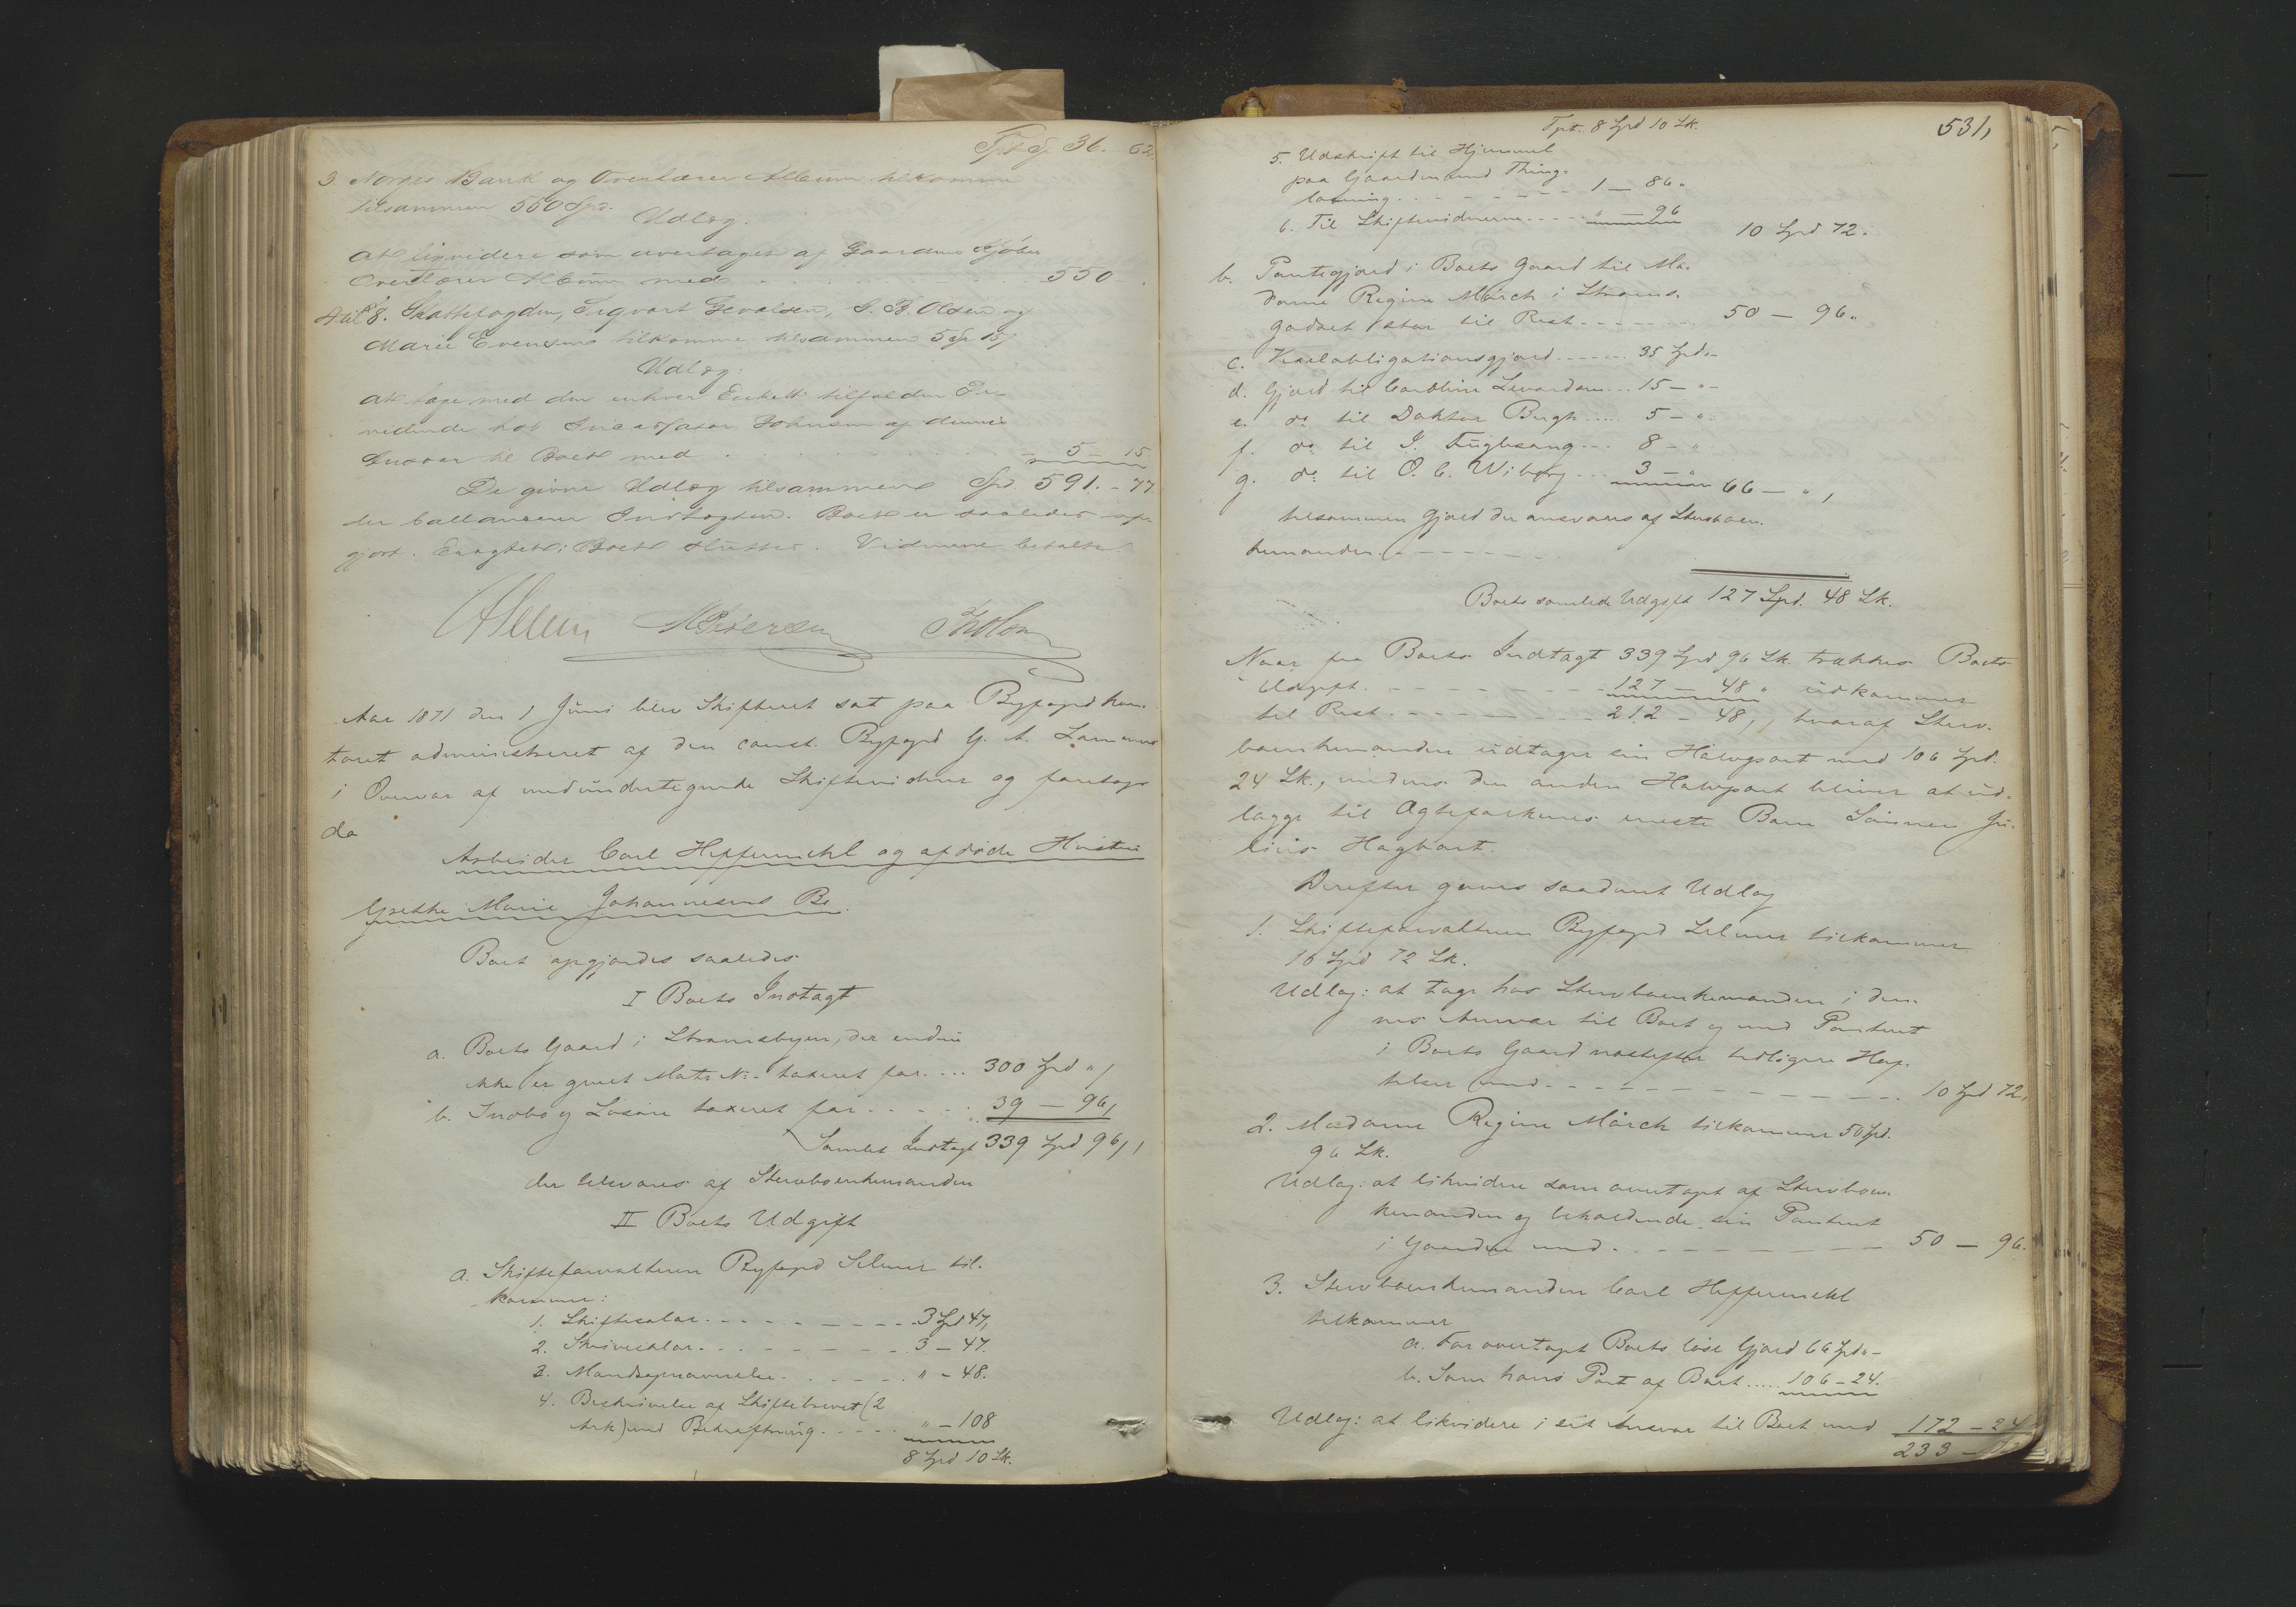 Tpt Sp. 36. 62.
3. Norges Bank og Overlærer Album tilkomme
tilsammen 550 Spd.
Udlæg.
At liqvidere som overtaget af Gaardens Kjøber
Overlærer Album med . . . . 550
4 til 8. Skattefogden, Sigvart Gevalsen, S. B. Olsen og
Marie Evensen tilkomme tilsammen 5 Sp 15 ß
Udlæg:
At tage med den enhver Enkelt tilfaldne Di-
vidende hos Incassator Johnsen af dennes
Ansvar til Boet med . . . . 5 - 15.
De givne Udlæg tilsammen Spd. 591. - 77.
der ballancerer Indtægten. Boet er saaledes op-
gjort. Eragtet: Boet sluttes. Vidnerne betalte.
Selmer MPetersen
Aar 1871 den 1 Juni blev Skifteret sat paa Bygfogdkon-
toret administreret af den const. Byfogd G. A.
i Overvær af medundertegnede Skiftevidner og foretoges
da
Arbeider Carl Heffermehl og afdøde Hustru
Grethe Marie Johannesens Bo.
Boet opgjordes saaledes
I Boets Indtægt
a. Boets Gaard i Strømsbyen, der endnu
ikke er givet Matr. No. taxeret for .... 300 Spd " ,
b. Indbo og Løsøre taxeret for . . . . 39 — 96,
Samlet Indtægt 339 Spd 96,,
der tilsvares af Stervboenkemanden
II Boets Udgift
a. Skifteforvalteren Byfogd Selmer til-
kommer:
1. Skiftesalær . . . . 3 Spd 47,
2. Skrivesalær . . . . 3 — 47.
3. Mandsopnævnelse . . . . " - 48.
4. Beskrivelse af Skiftebrevet (2
Ark) med Bekræftning . . . . " — 108
8 Spd 10 Sk.
531,
Tpt. 8 Spd 10 Sk.
5. Udskrift til Hjemmel
paa Gaarden med Thing-
læsning . . . . 1 — 86 "
6. Til Skiftevidnerne . . . . " — 96
10 Spd 72.
b. Pantegjæld i Boets Gaard til Ma-
dame Regine Mørch i Strøms-
godset stor til Rest . . . . 50 — 96 "
c. Vexelobligationsgjæld . . . . 35 Spd "
d. Gjæld til Caroline . . . 15 — " —
e. do til Doktor Bugh . . . . 5 — "
f. do til J. Fuglesang . . . 8 — "
g. do til O. C. Wiborg . . . 3 — " 66 — " ,
tilsammen Gjæld der ansvares af Stervboen-
kemanden . . . .
Boets samlede Udgift 127 Spd. 48 Sk.
Naar fra Boets Indtægt 339 Spd 96 Sk. trækkes Boets
Udgift . . . . 127 — 48 " udkommer
til Rest . . . . 212 — 48,, hvoraf Sterv-
boenkemanden udtager sin Halvpart med 106 Spd.
24 Sk., medens den anden Halvpart bliver at ud-
lægge til Ægtefolkenes eneste Barn Sønnen Ju-
lius Hagbart.
Derefter gives saadant Udlæg
1. Skifteforvalteren Byfogd Selmer tilkommer
10 Spd 72 Sk.
Udlæg: at tage hos Stervboenkemanden i den-
nes Ansvar til Boet og med Panteret
i Boets Gaard næstefter tidligere Hef-
telser med . . . . 10 Spd 72,
2. Madame Regine Mørch tilkommer 50 Spd.
96 Sk.
Udlæg: at likvidere som overtaget af Stervboen-
kemanden og beholdende sin Panteret
i Gaarden med . . . . 50 — 96.
3. Stervboenkemanden Carl Heffermehl
tilkommer
a. For overtaget Boets løse Gjæld 66 Spd " —
b. Som hans Part af Boet . . . . 106 - 24.
Udlæg: at likvidere i sit Ansvar til Boet med 172 — 24
233 —